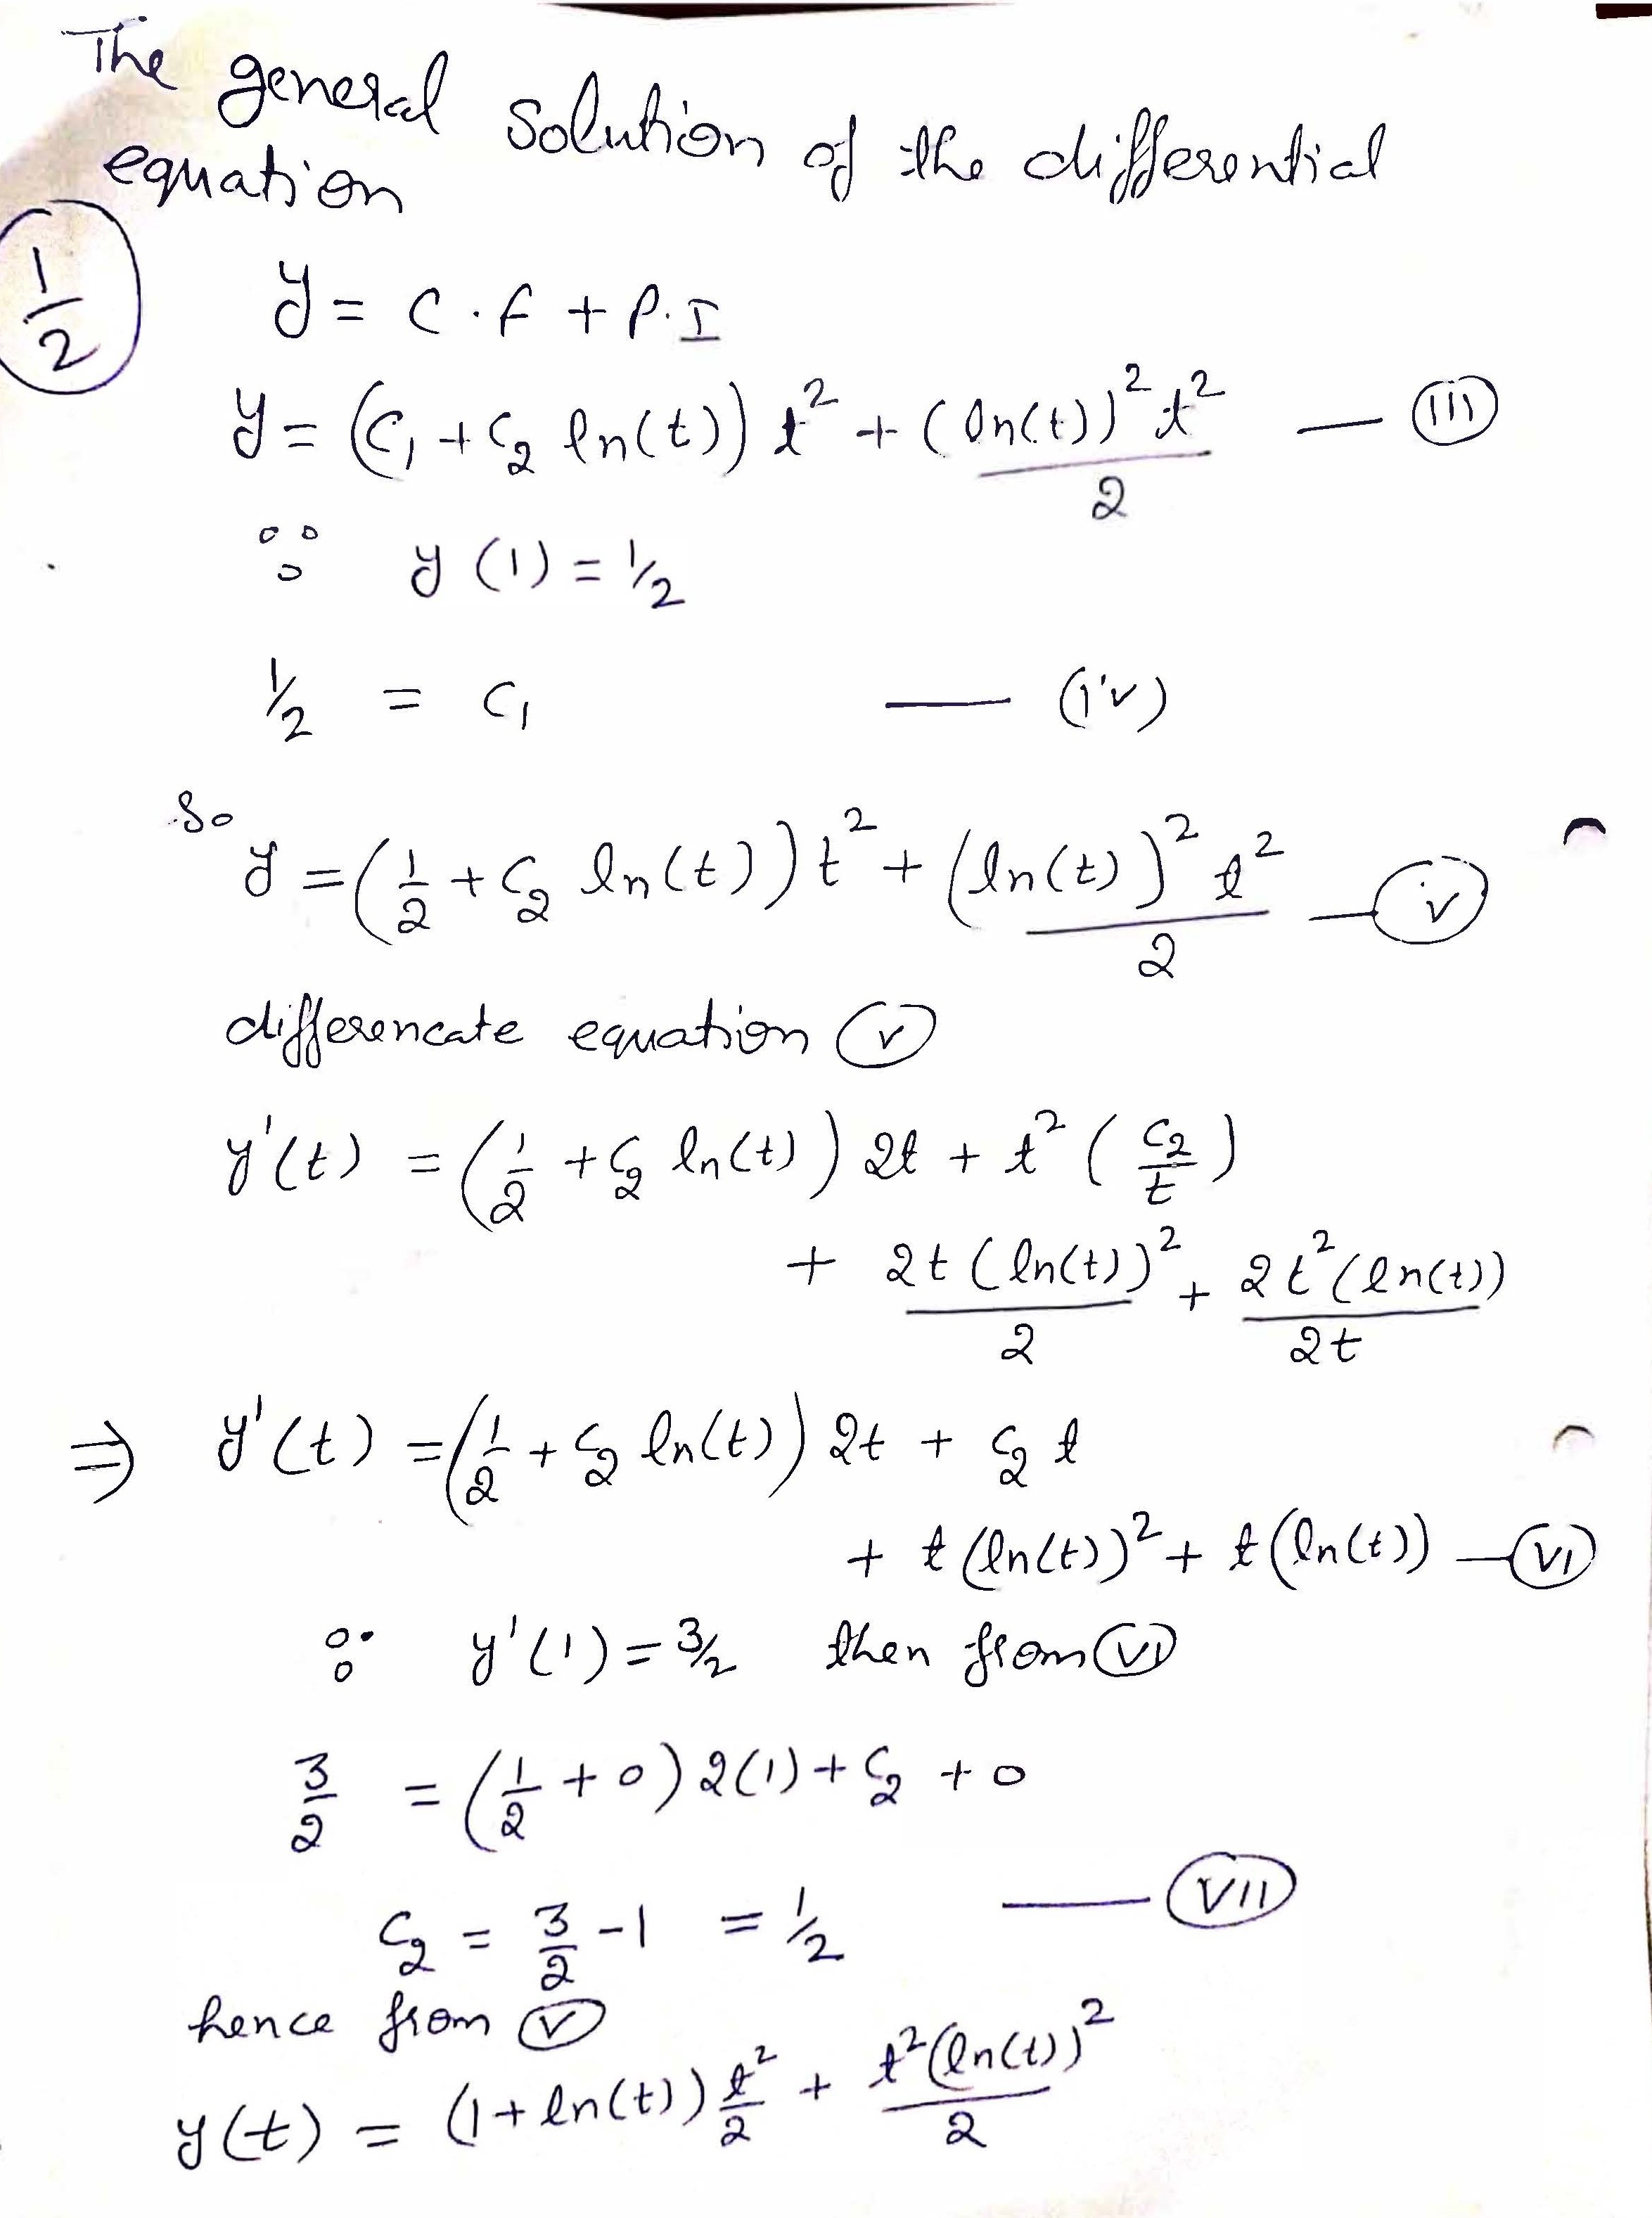 The general solution of the differential
equation
1/2
y = C.F + P.I
y = (C₁ + C₂ ln(t)) t² + (ln(t))² t² / 2 — (III)
∵ y(1) = 1/2
1/2 = C₁ — (iv)
So
y = (1/2 + C₂ ln(t)) t² + (ln(t))² t² / 2 — (v)
differencate equation (v)
y'(t) = (1/2 + C₂ ln(t)) 2t + t² (C₂/t)
+ 2t (ln(t))² / 2 + 2t² (ln(t)) / 2t
⇒ y'(t) = (1/2 + C₂ ln(t)) 2t + C₂ t
+ t (ln(t))² + t (ln(t)) — (VI)
∵ y'(1) = 3/2 then from (VI)
3/2 = (1/2 + 0) 2(1) + C₂ + 0
C₂ = 3/2 - 1 = 1/2 — (VII)
hence from (V)
y(t) = (1 + ln(t)) t²/2 + t² (ln(t))² / 2